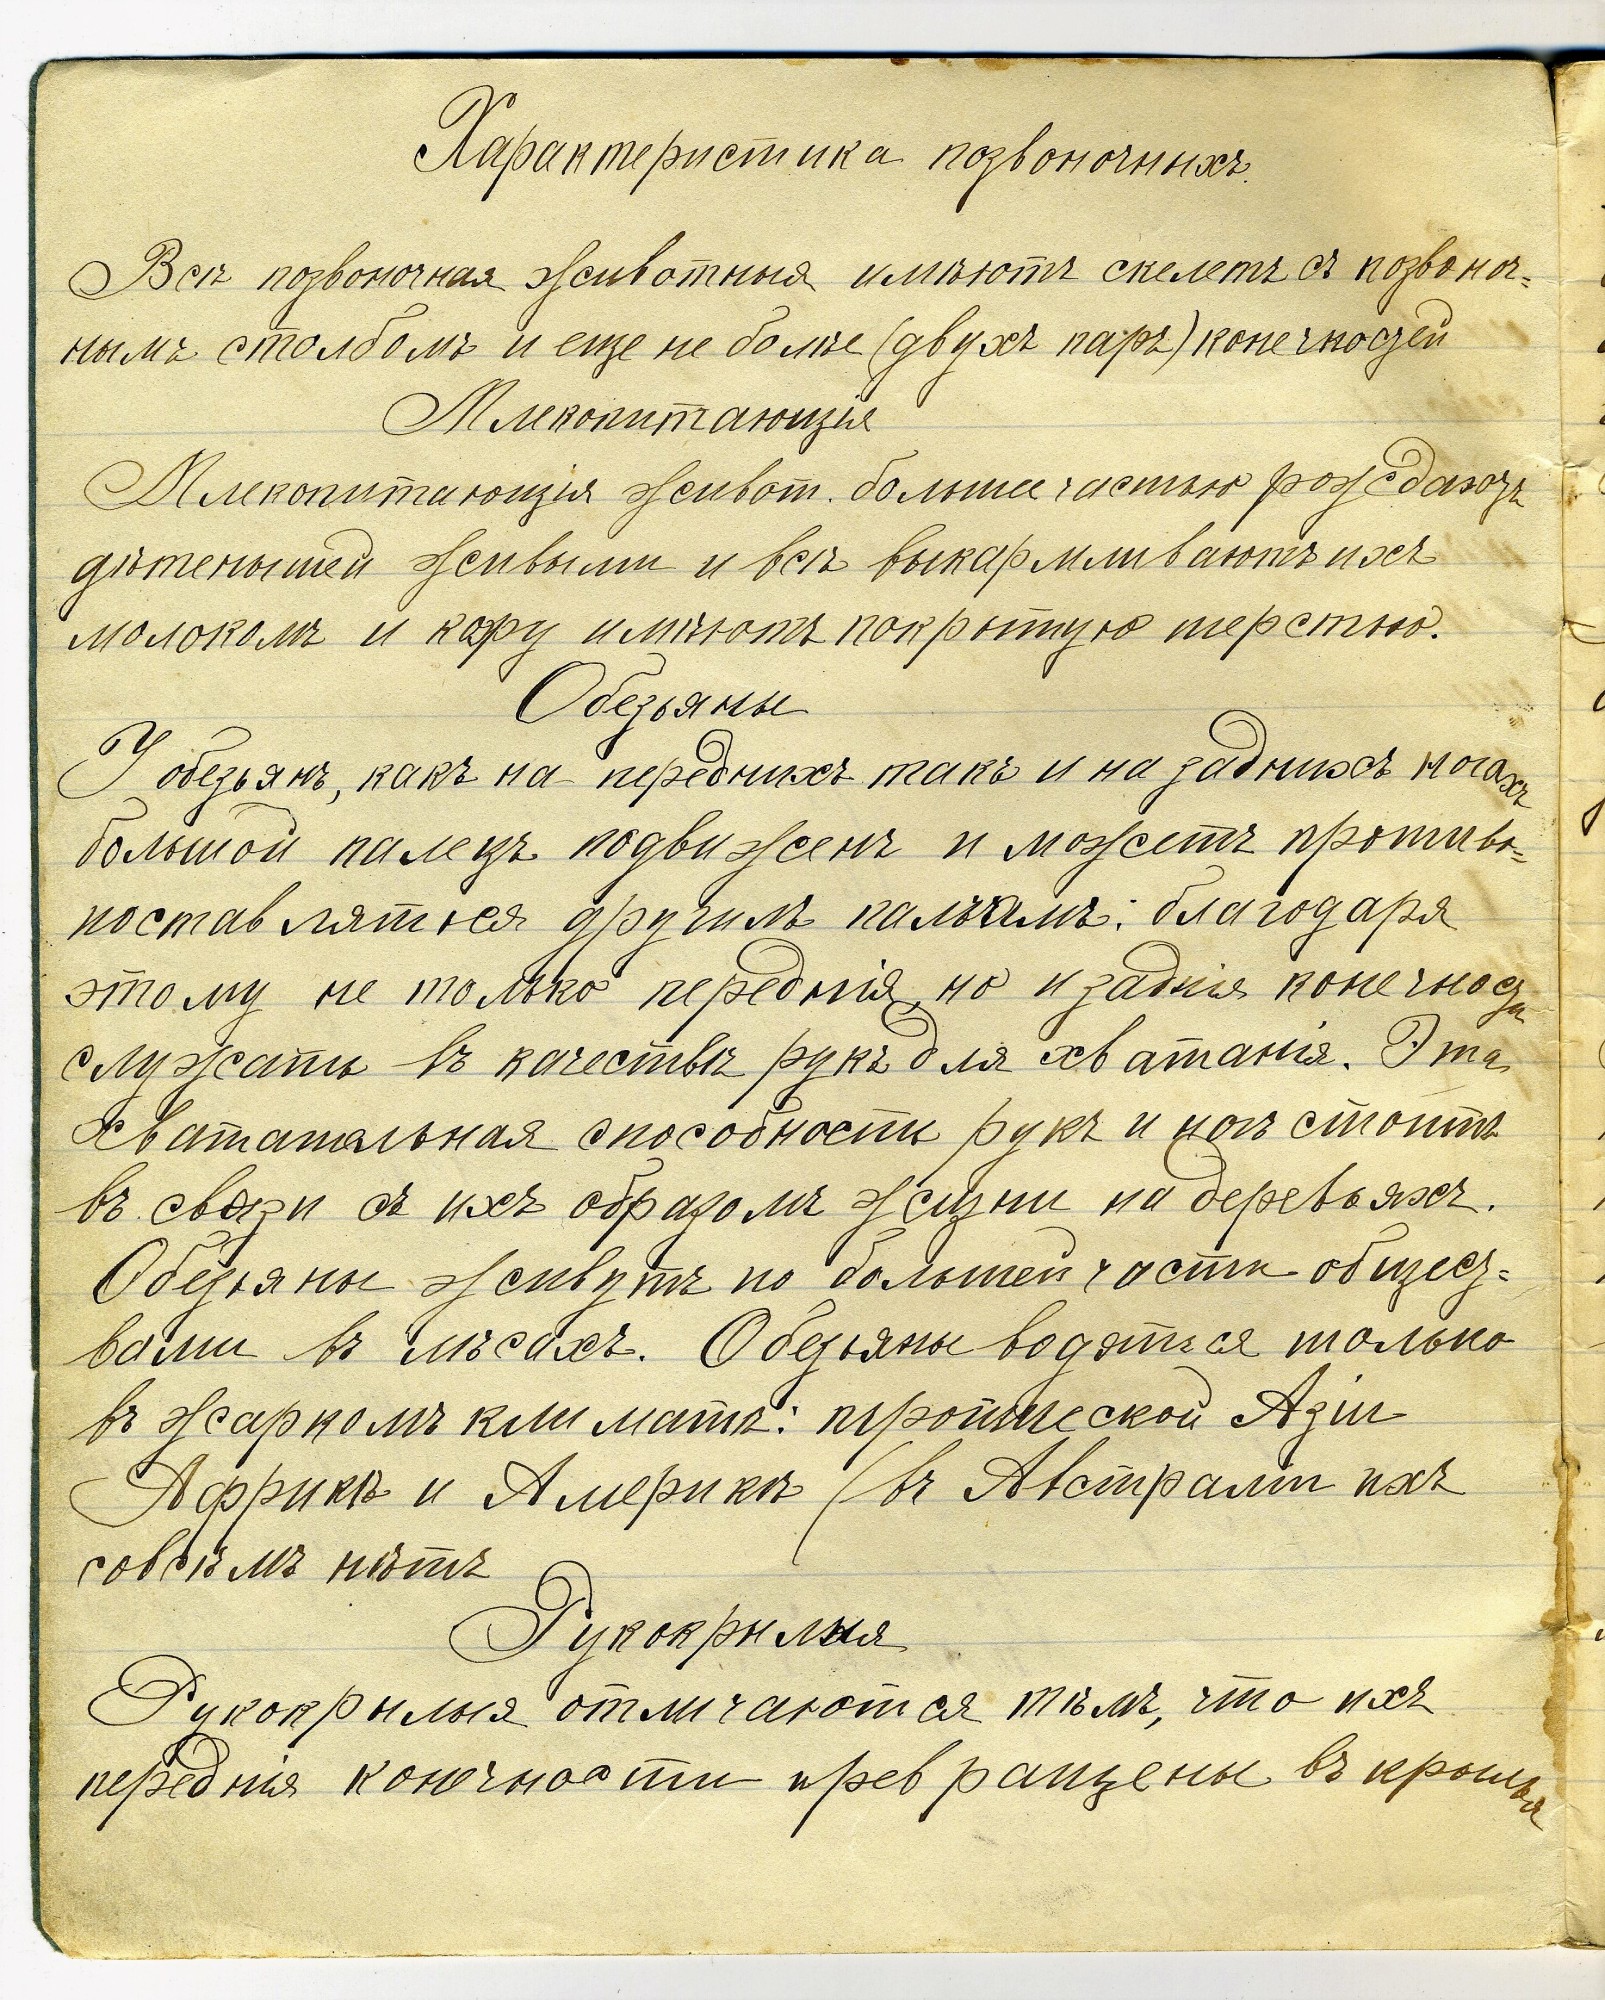 Характеристика позвоночныхъ.
Всѣ позвоночная животныя имѣютъ скелетъ съ позвоноч=
нымъ столбомъ и еще не болѣе (двухъ паръ) конечностей
Млекопитающія
Млекопитающія живот. большее частью рождаютъ
дѣтенышей живыми и всѣ выкармливаютъ ихъ
молокомъ и кожу имѣютъ покрытую шерстью.
Обезьяны
У обезьянъ, какъ на переднихъ такъ и на заднихъ ногахъ
большой палецъ подвиженъ и можетъ противо=
поставляться другимъ пальцамъ: благодаря
этому не только переднія, но и заднія конечности
служатъ въ качествѣ рукъ для хватанія. Эта
хватательная способность рукъ и ногъ стоитъ
въ связи съ ихъ образомъ жизни на деревьяхъ.
Обезьяны живутъ по большей части общест=
вами въ лѣсахъ. Обезьяны водяться только
въ жаркомъ климатѣ: тропической Азіи
Африкѣ и Америкѣ (въ Австраліи ихъ
совсѣмъ нѣтъ
Рукокрылыя
Рукокрылыя отличаются тѣмъ, что ихъ
переднія конечности превращены въ крылья